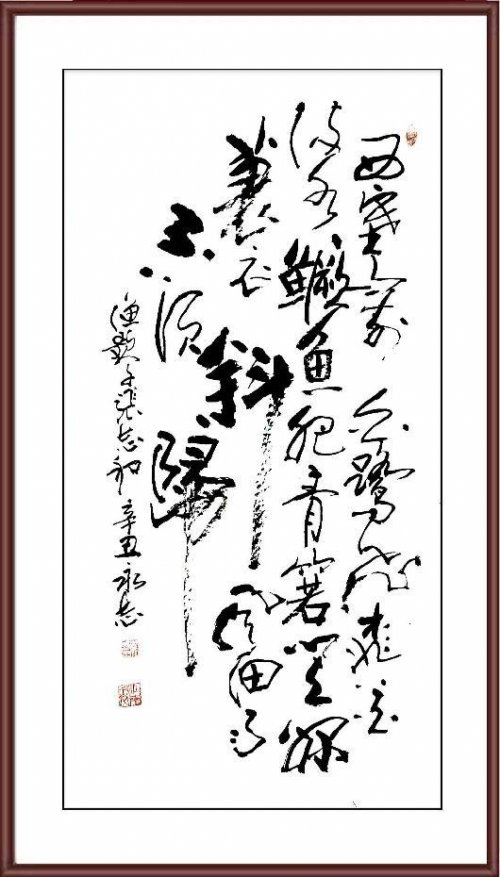 西塞山前白鹭飞桃花
流水鱖鱼肥青箬笠绿
蓑衣斜风细雨
不須歸
渔歌子張志和 辛丑永志